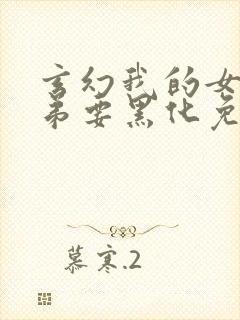 玄幻我的女
弟要黑化免
慕寒.2